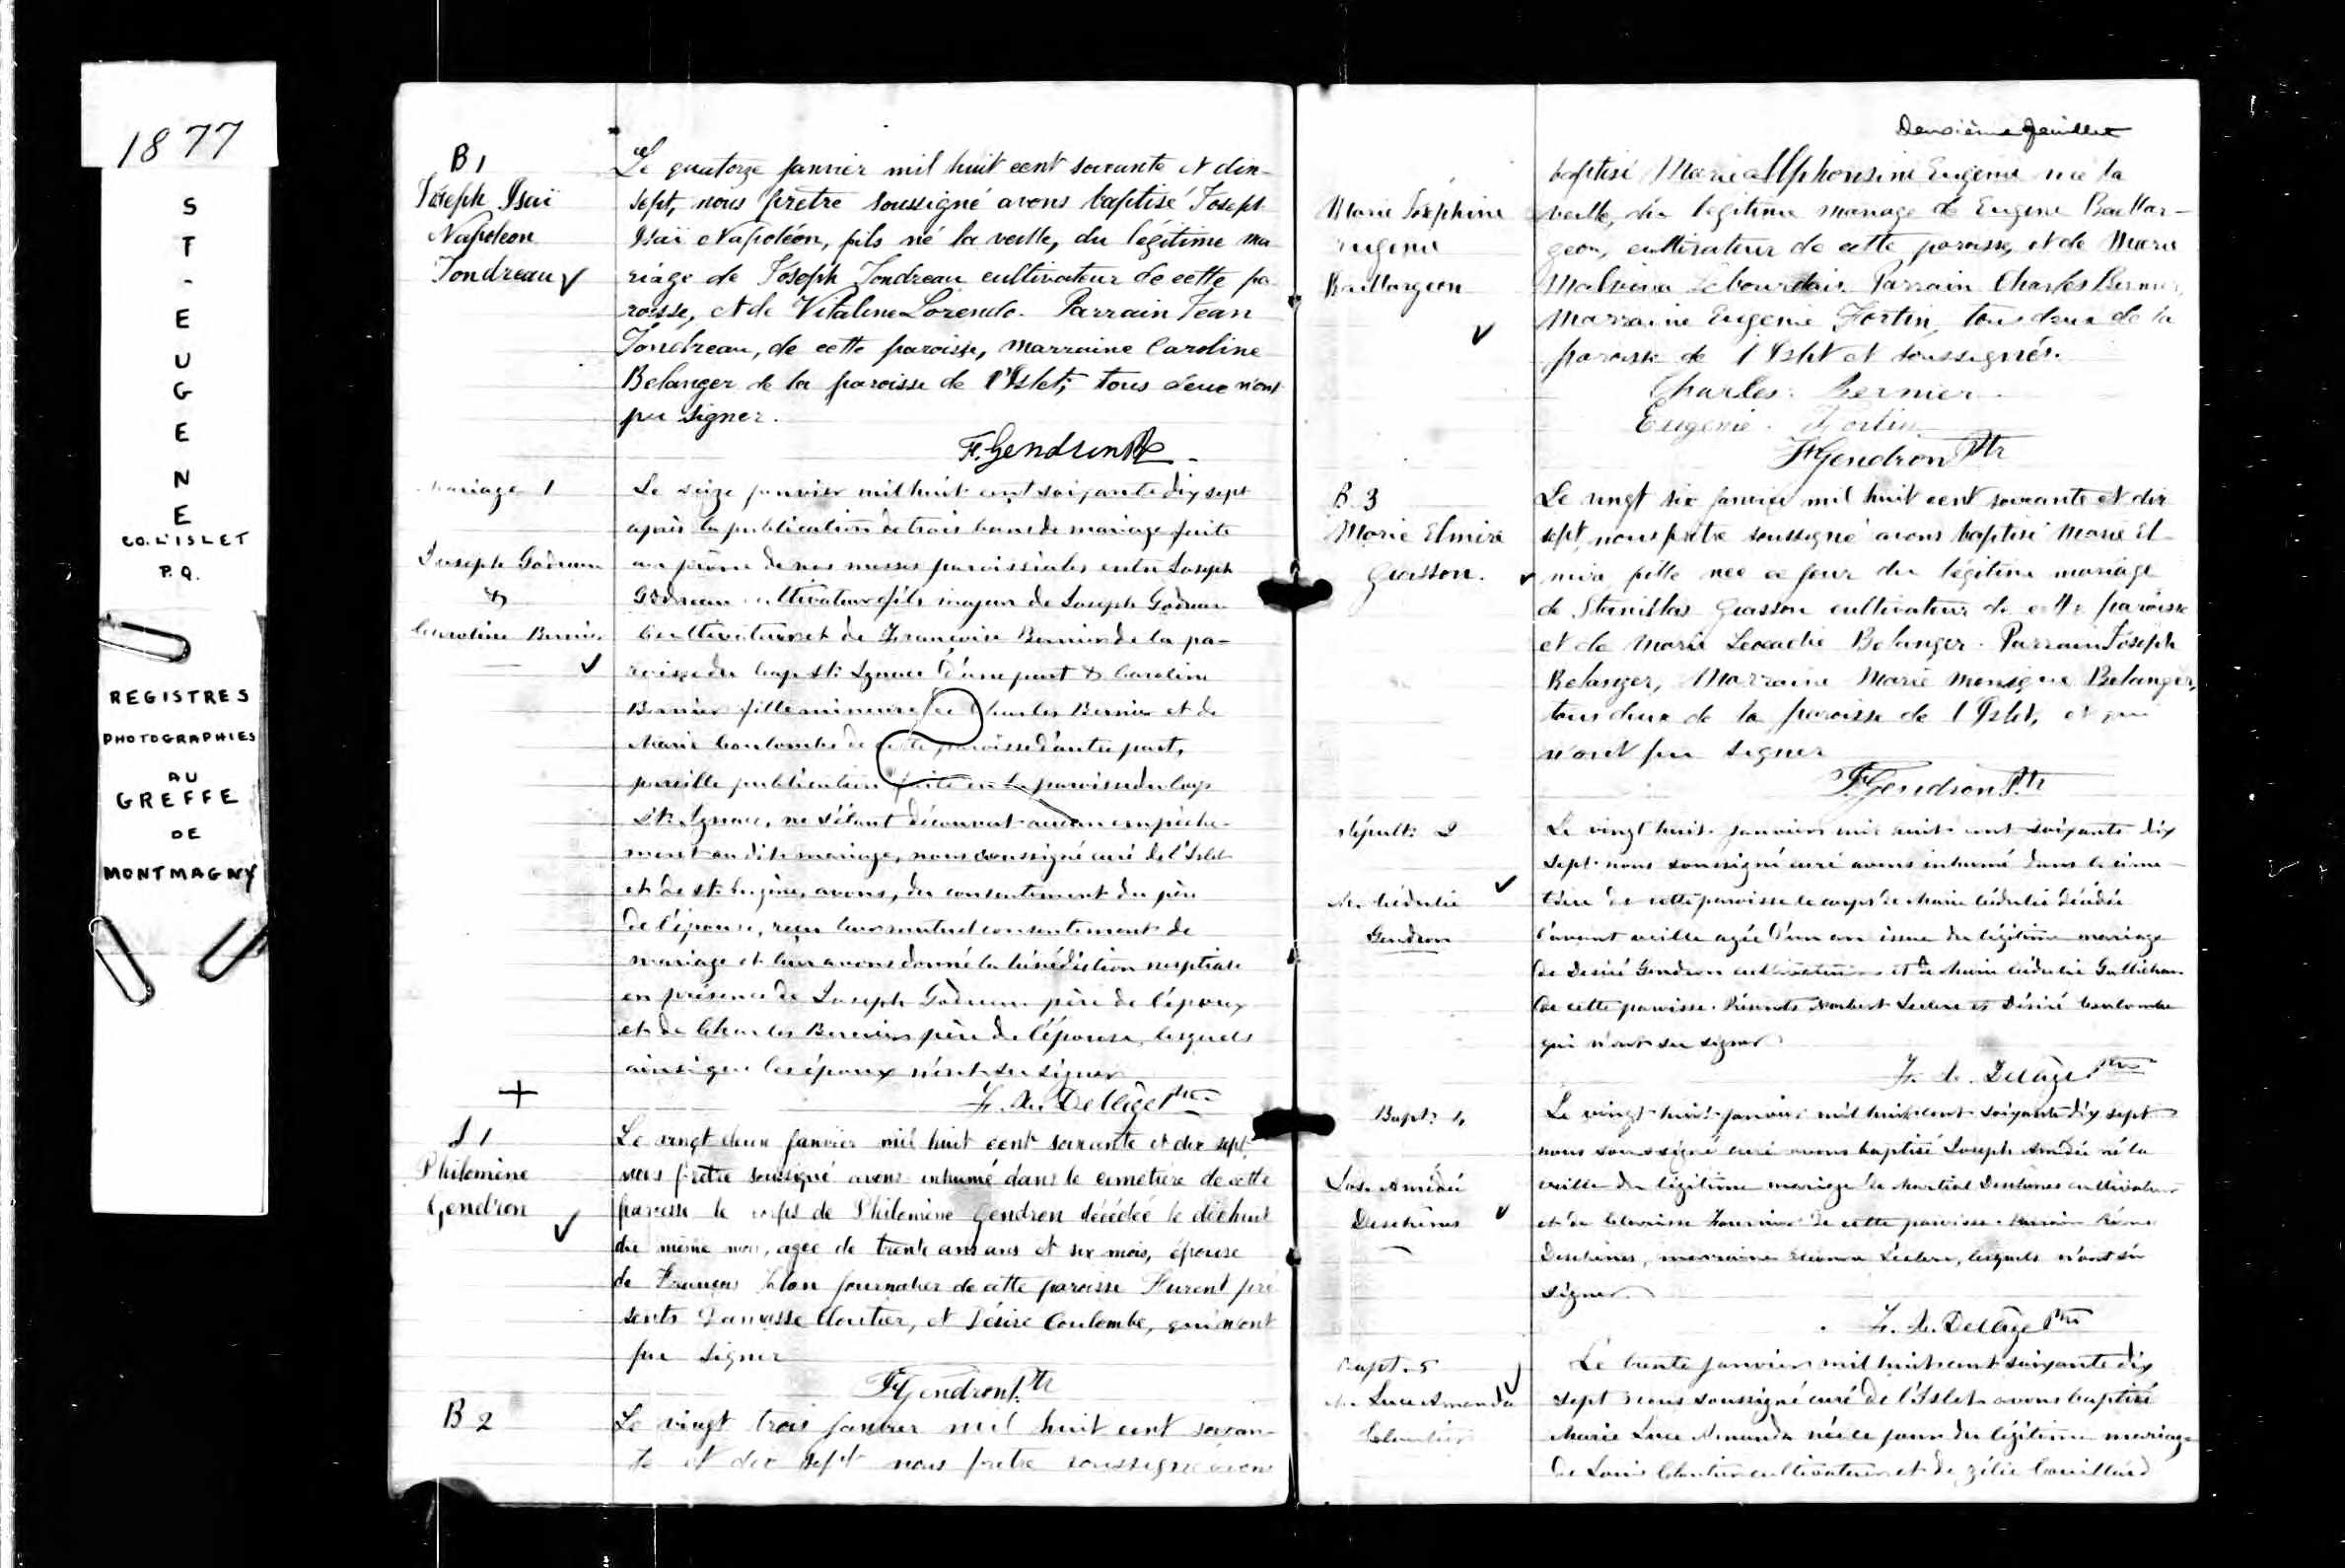 1877
S
T
-
E
U
G
E
N
E
CO. L'ISLET
P.Q.
REGISTRES
PHOTOGRAPHIES
AU
GREFFE
DE
MONTMAGNY
B 1
Joseph Isaï
Napoleon
Tondreau
Le quatorze janvier mil huit cent soixante et dix-
sept, nous prêtre soussigné avons baptisé Joseph
Isaï Napoléon, fils né la veille, du légitime ma
riage de Joseph Tondreau cultivateur de cette pa
roisse, et de Vitaline Parrain Jean
Tondreau, de cette paroisse, marraine Caroline
Belanger de la paroisse de l'Islet; tous deux n'ont
pu signer.
F. Gendron Ptr
Mariage 1
Joseph Godreau
&
Caroline Bernier
Le seize janvier mil huit cent soixante dix sept
après la publication de trois bans de mariage faite
au prône de nos messes paroissiales entre Joseph
Godreau cultivateur fils majeur de Joseph Godreau
cultivateur et de Françoise Bernier de la pa-
roisse du Cap St. Ignace d'une part & Caroline
Bernier fille mineure de Charles Bernier et de
Marie Coulombe de cette paroisse d'autre part,
pareille publication faite en la paroisse du Cap
St. Ignace, ne s'étant découvert aucun empêche-
ment au dit mariage, nous soussigné curé de l'Islet
et de St. Eugène, avons, du consentement du père
de l'épouse, reçu leur mutuel consentement de
mariage et leur avons donné la bénédiction nuptiale
en présence de Joseph Godreau père de l'époux
et de Charles Bernier père de l'épouse, lesquels
ainsi que les époux n'ont su signer
F. X. Delâge Ptre
S 1
Philomène
Gendron
Le vingt deux janvier mil huit cent soixante et dix sept
nous prêtre soussigné avons inhumé dans le cimetière de cette
paroisse le corps de Philomène Gendron décédée le dixhuit
du même mois, agée de trente ans ans et six mois, épouse
de François journalier de cette paroisse Furent pré
sents Damasse Cloutier, et Désiré Coulombe, qui n'ont
pu signer
F Gendron Ptr
B 2
Le vingt trois janvier mil huit cent soixan-
te et dix sept nous prêtre soussigné avons
Deuxième feuillet
Marie Joséphine
Eugenie
Baillargeon
baptisé Marie Alphonsine Eugenie née la
veille, du légitime mariage de Eugene Baillar-
geon, cultivateur de cette paroisse, et de Marie
Malvina Lebourdais Parrain Charles Bernier,
Marraine Eugenie Fortin, tous deux de la
paroisse de l'Islet et soussignés.
Charles Bernier
Eugenie Fortin
F Gendron Ptr
B 3
Marie Elmire
Gasson.
Le vingt six janvier mil huit cent soixante et dix
sept, nous prêtre soussigné avons baptisé Marie El
mire fille née ce jour du légitime mariage
de Stanislas Gasson cultivateur de cette paroisse
et de Marie Leocadie Belanger. Parrain Joseph
Belanger, Marraine Marie Belanger,
tous deux de la paroisse de l'Islet, et qui
n'ont pu signer
F. Gendron Ptr
Sépult: 2
M. Cédulie
Gendron
Le vingt huit janvier mil huit cent soixante dix
sept nous soussigné curé avons inhumé dans le cime-
tière de cette paroisse le corps de Marie Cédulie décédée
l'avant veille agée d'un an issue du légitime mariage
de Desiré Gendron cultivateur et de Marie Cédulie
de cette paroisse. Présents Norbert Leclerc et Désiré Coulombe
qui n'ont su signer
F. X. Delâge Ptre
Bapt: 4
Jos. Amédée
Deschênes
Le vingt-huit janvier mil huit cent soixante dix sept
nous soussigné curé avons baptisé Joseph Amédée né la
veille du légitime mariage de Martial Deschênes cultivateur
et de Clarisse Fournier de cette paroisse. Parrain
Deschênes, marraine Leclerc, lesquels n'ont su
signer.
F. X. Delâge Ptre
Bapt. 5
M. Luce Amanda
Cloutier
Le trente janvier mil huit cent soixante dix
sept nous soussigné curé de l'Islet avons baptisé
Marie Luce Amanda née ce jour du légitime mariage
de Louis Cloutier cultivateur et de Zélie Couillard